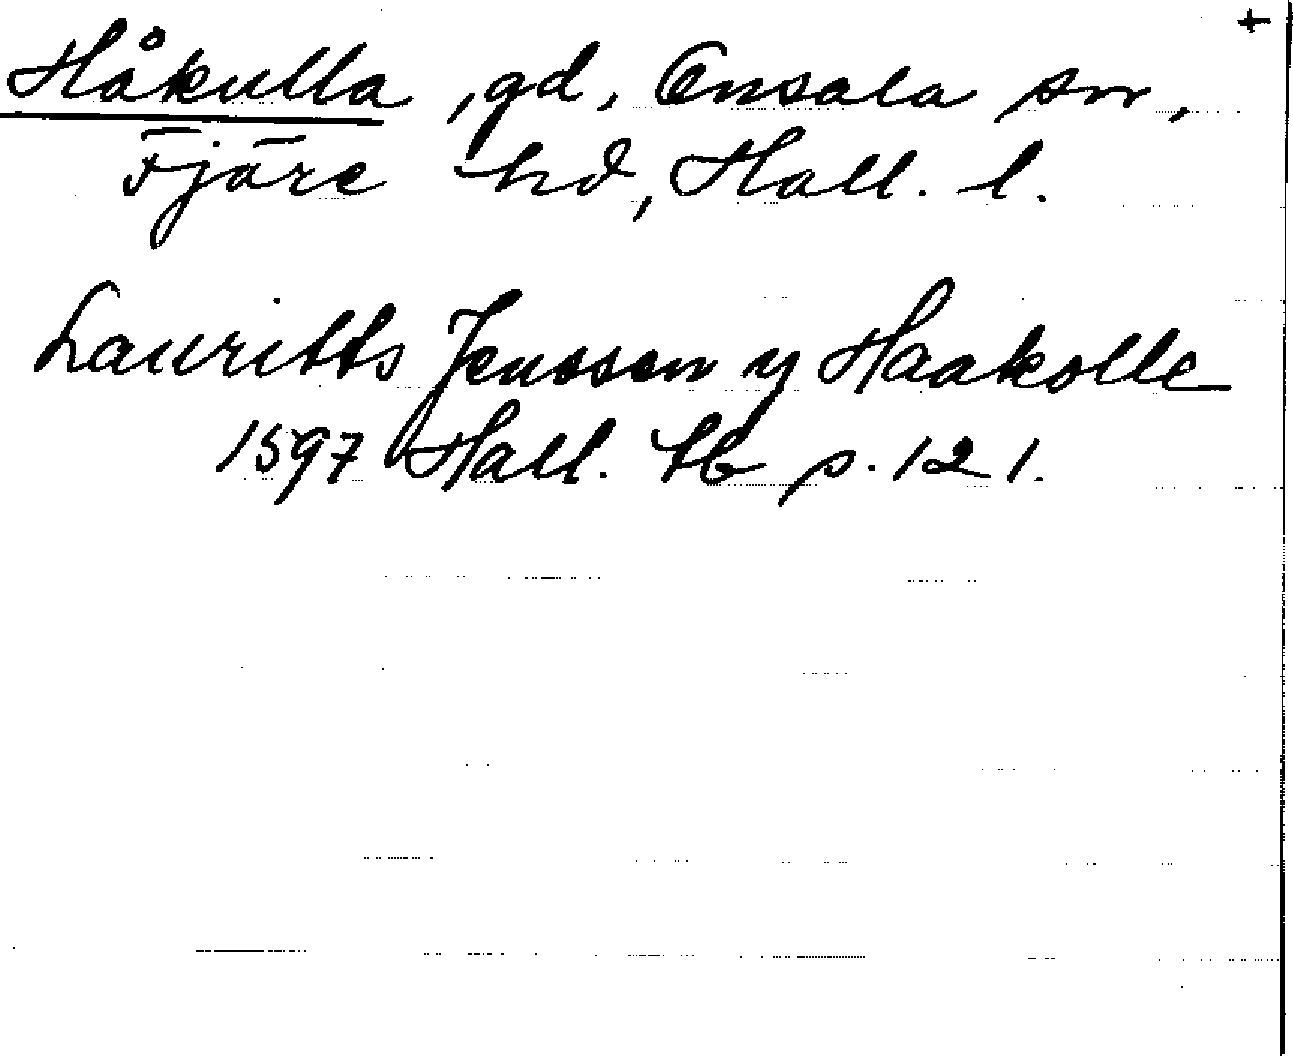 +
Håkulla, gd, Onsala sn,
Fjäre hd, Hall. l.
Lauritts Jenssen y Haakolle
1597 Hall. tb p. 121.